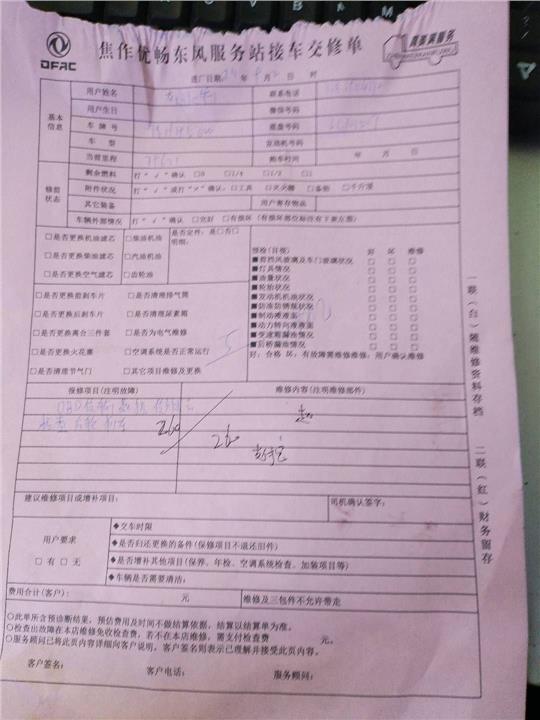 DFAC
焦作优畅东风服务站接车交修单
进厂日期 年 月 日 时
基本信息
用户姓名 联系电话
用户生日 微信号码
车牌号 底盘号码
车型 发动机号码
当前里程 购车时间 年 月 日
修前状态
剩余燃料 打“√”确认 □0 □1/4 □1/2 □1
附件状况 打“√”或打“×”确认,□工具 □灭火器 □备胎 □千斤顶
其它装备 用户寄存物品
车辆外部情况 打“√”确认 □完好 □有损坏(有损坏部位标注有下表左图)
□是否更换机油滤芯 □柴油机油
□是否更换柴油滤芯 □汽油机油
□是否更换空气滤芯 □齿轮油
是否定件:是□否□
明细:
□是否更换前刹车片 □是否清理排气筒
□是否更换后刹车片 □是否清理尿素箱
□是否更换离合三件套 □是否为电气维修
□是否更换火花塞 □空调系统是否正常运行
□是否清理节气门 □其它项目维修及更换
预检(目视) 好 坏 维修
■前挡风玻璃及车门玻璃状况 □ □ □
■灯具情况 □ □ □
■油量状况 □ □ □
■轮胎状况 □ □ □
■发动机机油状况 □ □ □
■防冻防锈液状况 □ □ □
■制动液液面 □ □ □
■动力转向液液面 □ □ □
■变速箱漏油情况 □ □ □
■后桥漏油情况 □ □ □
好:合格 坏:有故障需维修维修:用户确认维修
报修项目(注明故障) 维修内容(注明维修部件)
260
260
建议维修项目或增补项目: 司机确认签字:
用户要求
□有 □无
◆交车时限
◆是否归还更换的备件(保修项目不退还旧件)
◆是否增补其他项目(保养、年检、空调系统检查、加装项目等)
◆车辆是否需要清洁:
费用合计(客户): 元 维修及三包件不允许带走
○此单所含预诊断结果,预估费用及时间不做结算依据,结算以结算单为准。
○检查出故障在本店维修免收检查费,若不在本店维修,需支付检查费 元。
○服务顾问已将此页内容详细向客户说明,客户签名则表示已理解并接受此页内容。
客户签名: 客户电话: 服务顾问:
一联(白)随维修资料存档
二联(红)财务留存